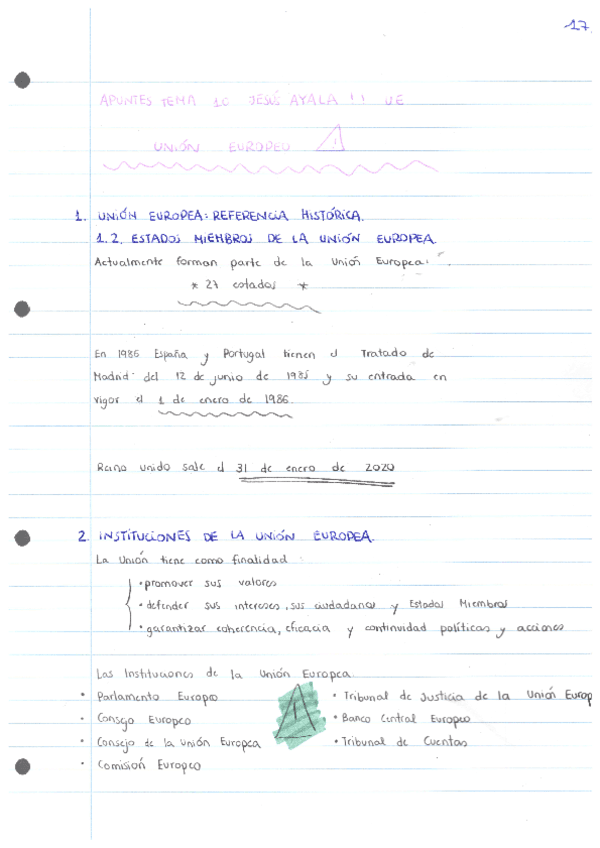 17.
APUNTES TEMA 10 JESÚS AYALA !! UE
UNIÓN EUROPEU
1. UNIÓN EUROPEA: REFERENCIA HISTÓRICA.
1.2. ESTADOS MIEMBROS DE LA UNIÓN EUROPEA.
Actualmente forman parte de la Unión Europea:
* 27 estados *
En 1986 España y Portugal tienen el Tratado de
Madrid del 12 de junio de 1985 y su entrada en
vigor el 1 de enero de 1986.
Reino unido sale el 31 de enero de 2020
2. INSTITUCIONES DE LA UNIÓN EUROPEA.
La Unión tiene como finalidad:
• promover sus valores
• defender sus intereses, sus ciudadanos y Estados Miembros
• garantizar coherencia, eficacia y continuidad políticas y acciones
Las Instituciones de la Unión Europea.
• Parlamento Europeo
• Consejo Europeo
• Consejo de la Unión Europea
• Comisión Europeo
• Tribunal de Justicia de la Unión Europ
• Banco Central Europeo
• Tribunal de Cuentas